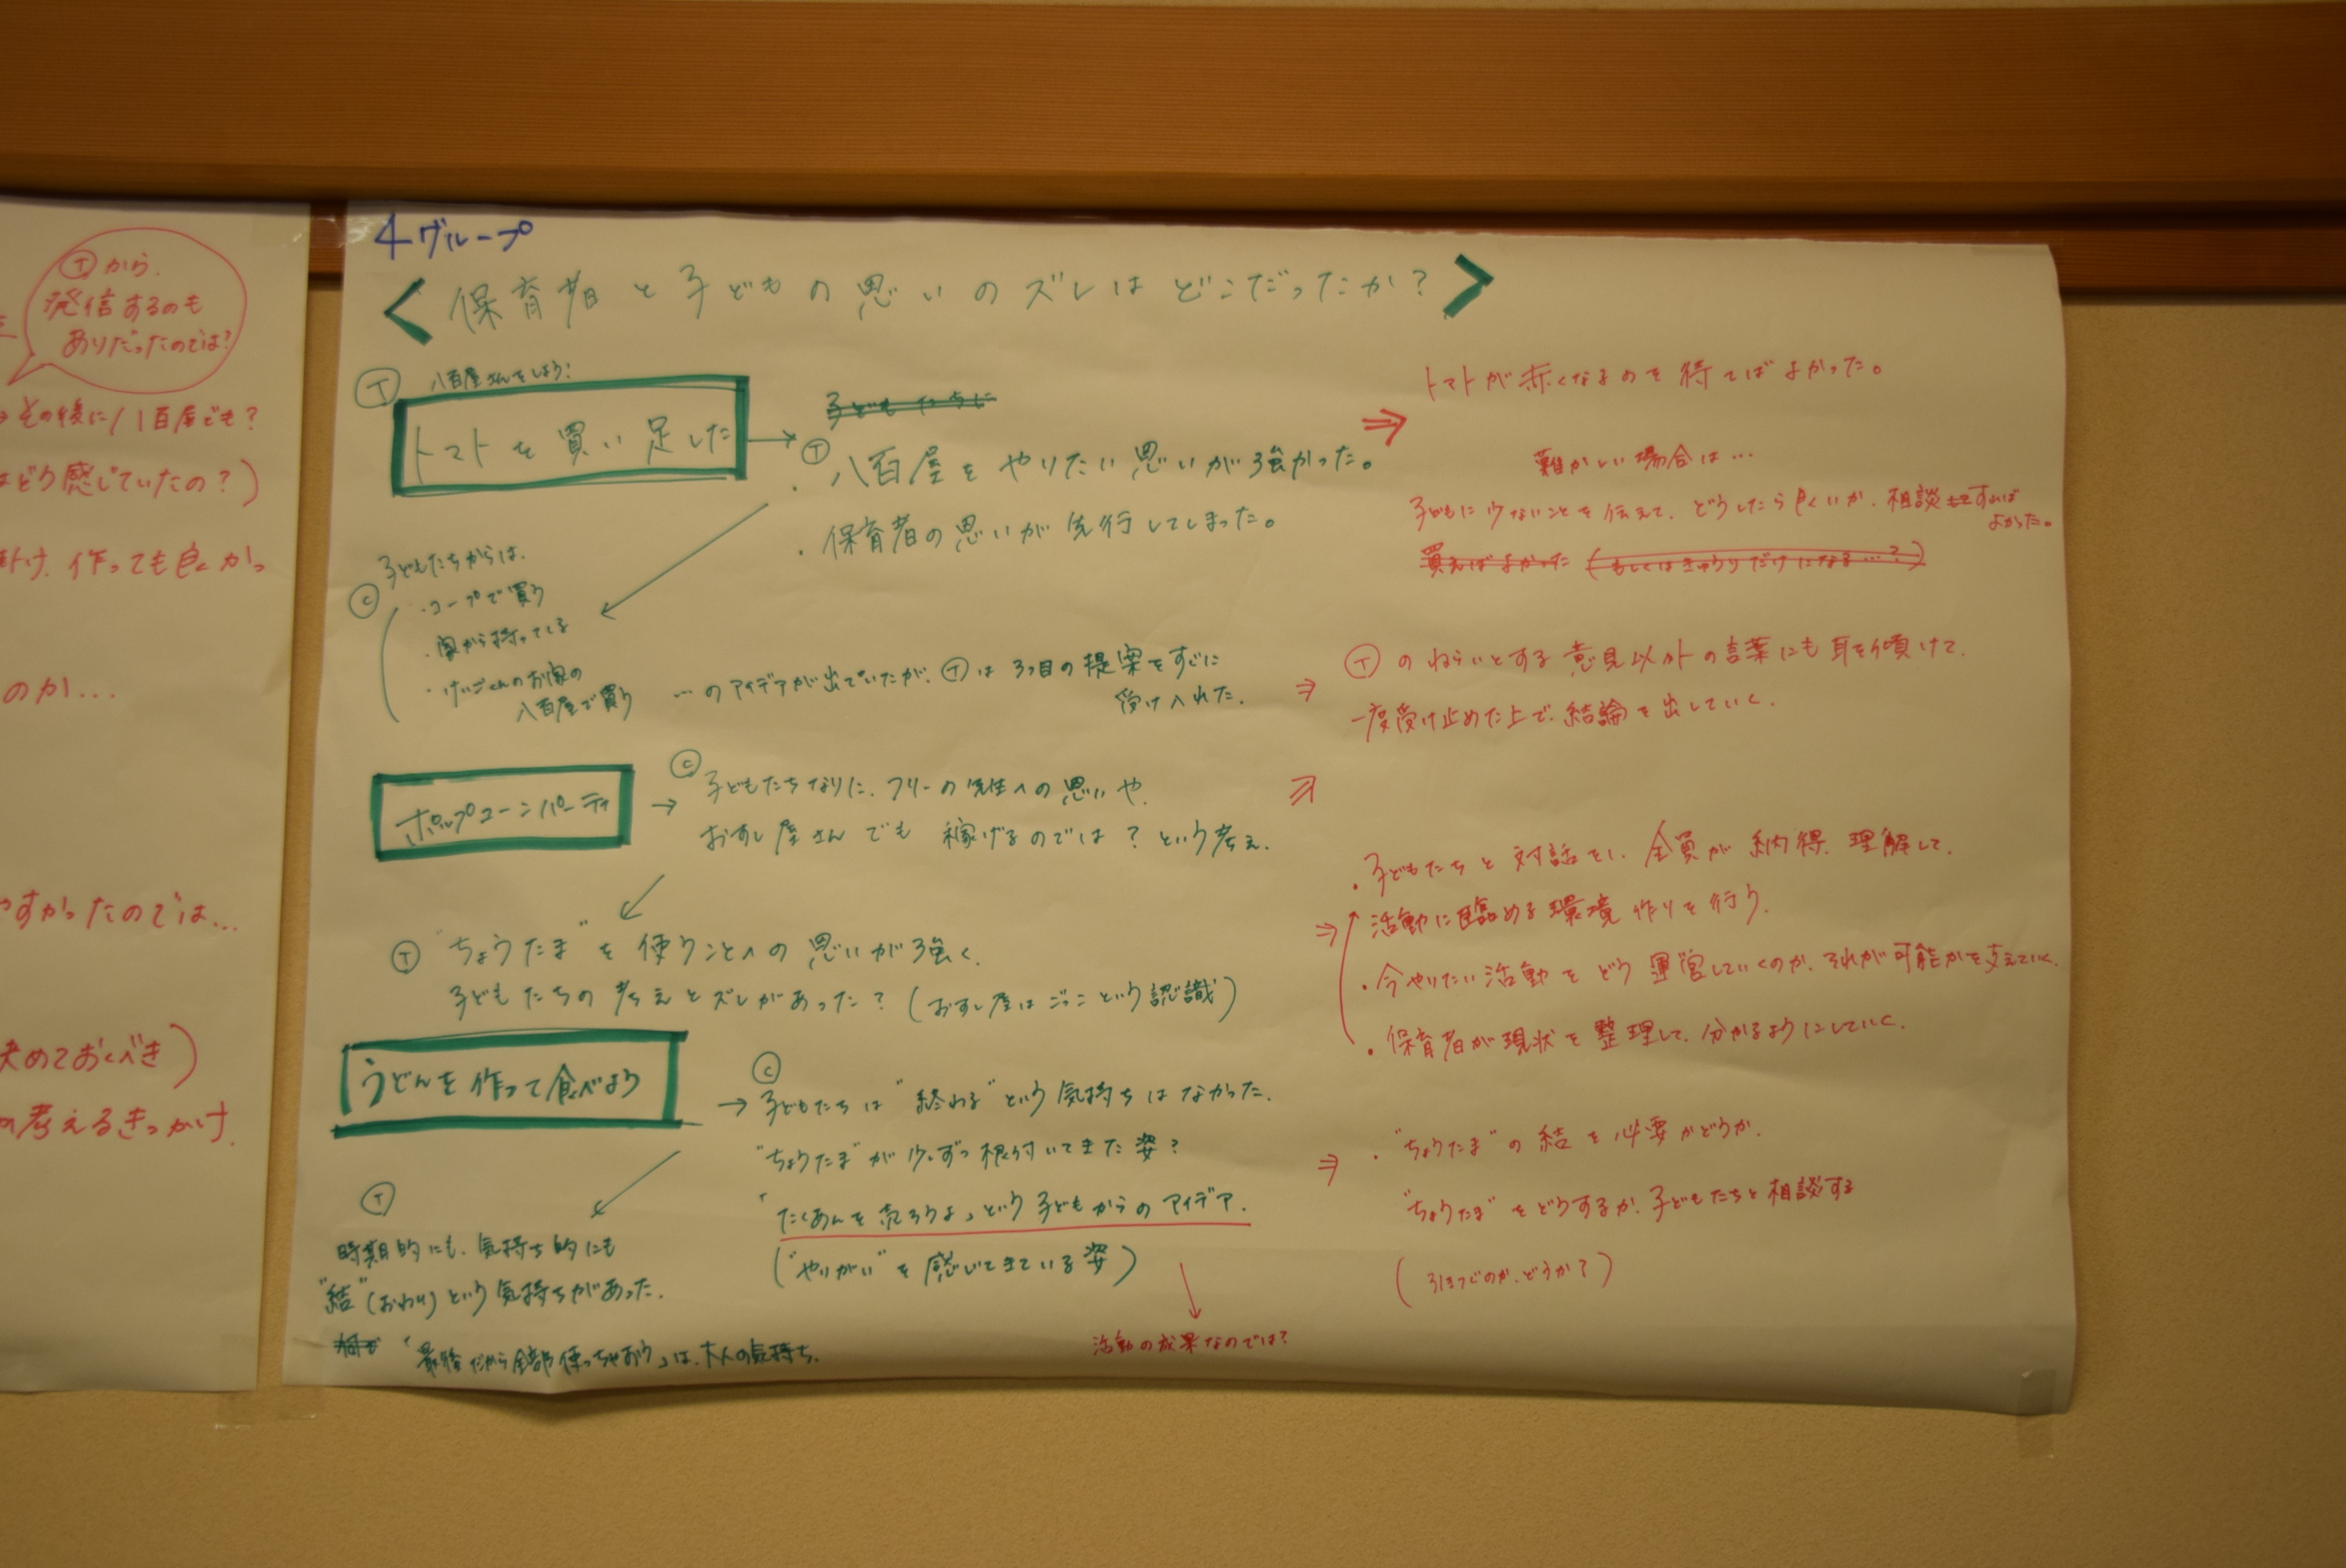 Ⓣから
発信するのも
ありだったのでは?
その後に八百屋でも?
はどう感じていたの?)
作っても良かっ
のか…
やすかったのでは…
決めておくべき)
考えるきっかけ
4グループ
<保育者と子どもの思いのズレはどこだったか?>
Ⓣ 八百屋さんをしよう!
トマトを買い足した
子どもたちに
Ⓣ
・八百屋をやりたい思いが強かった。
・保育者の思いが先行してしまった。
⇒ トマトが赤くなるのを待てばよかった。
難かしい場合は…
子どもに少ないことを伝えて、どうしたら良いか、相談すれば
よかった。
買えばよかった (もしくはきゅうりだけになる…?)
子どもたちからは、
Ⓒ
・コープで買う
・家から持ってくる
・けいごくんのお家の
八百屋で買う
…のアイデアが出ていたが、Ⓣは3つ目の提案をすぐに
受け入れた。
⇒ Ⓣのねらいとする意見以外の言葉にも耳を傾けて、
一度受け止めた上で、結論を出していく。
ポップコーンパーティ
→ Ⓒ 子どもたちなりに、フリーの先生への思いや、
おすし屋さんでも稼げるのでは?という考え。
⇒
Ⓣ "ちょうたま"を使うことへの思いが強く、
子どもたちの考えとズレがあった?(おすし屋はごっこという認識)
・子どもたちと対話をし、全員が納得、理解して、
⇒ 活動に臨める環境作りを行う。
・今やりたい活動をどう運営していくのか、それが可能かを支えていく。
・保育者が現状を整理して、分かるようにしていく。
うどんを作って食べよう
Ⓒ
→ 子どもたちは"終わる"という気持ちはなかった。
"ちょうたま"が少しずつ根付いてきた姿?
「たくあんを売ろうよ」という子どもからのアイデア。
("やりがい"を感じてきている姿)
活動の成果なのでは?
Ⓣ
時期的にも、気持ち的にも
"結"(おわり)という気持ちがあった。
「最後だから全部使っちゃおう」は、大人の気持ち。
⇒ ・"ちょうたま"の結を必要かどうか。
"ちょうたま"をどうするか、子どもたちと相談する
(引きつぐのか、どうか?)